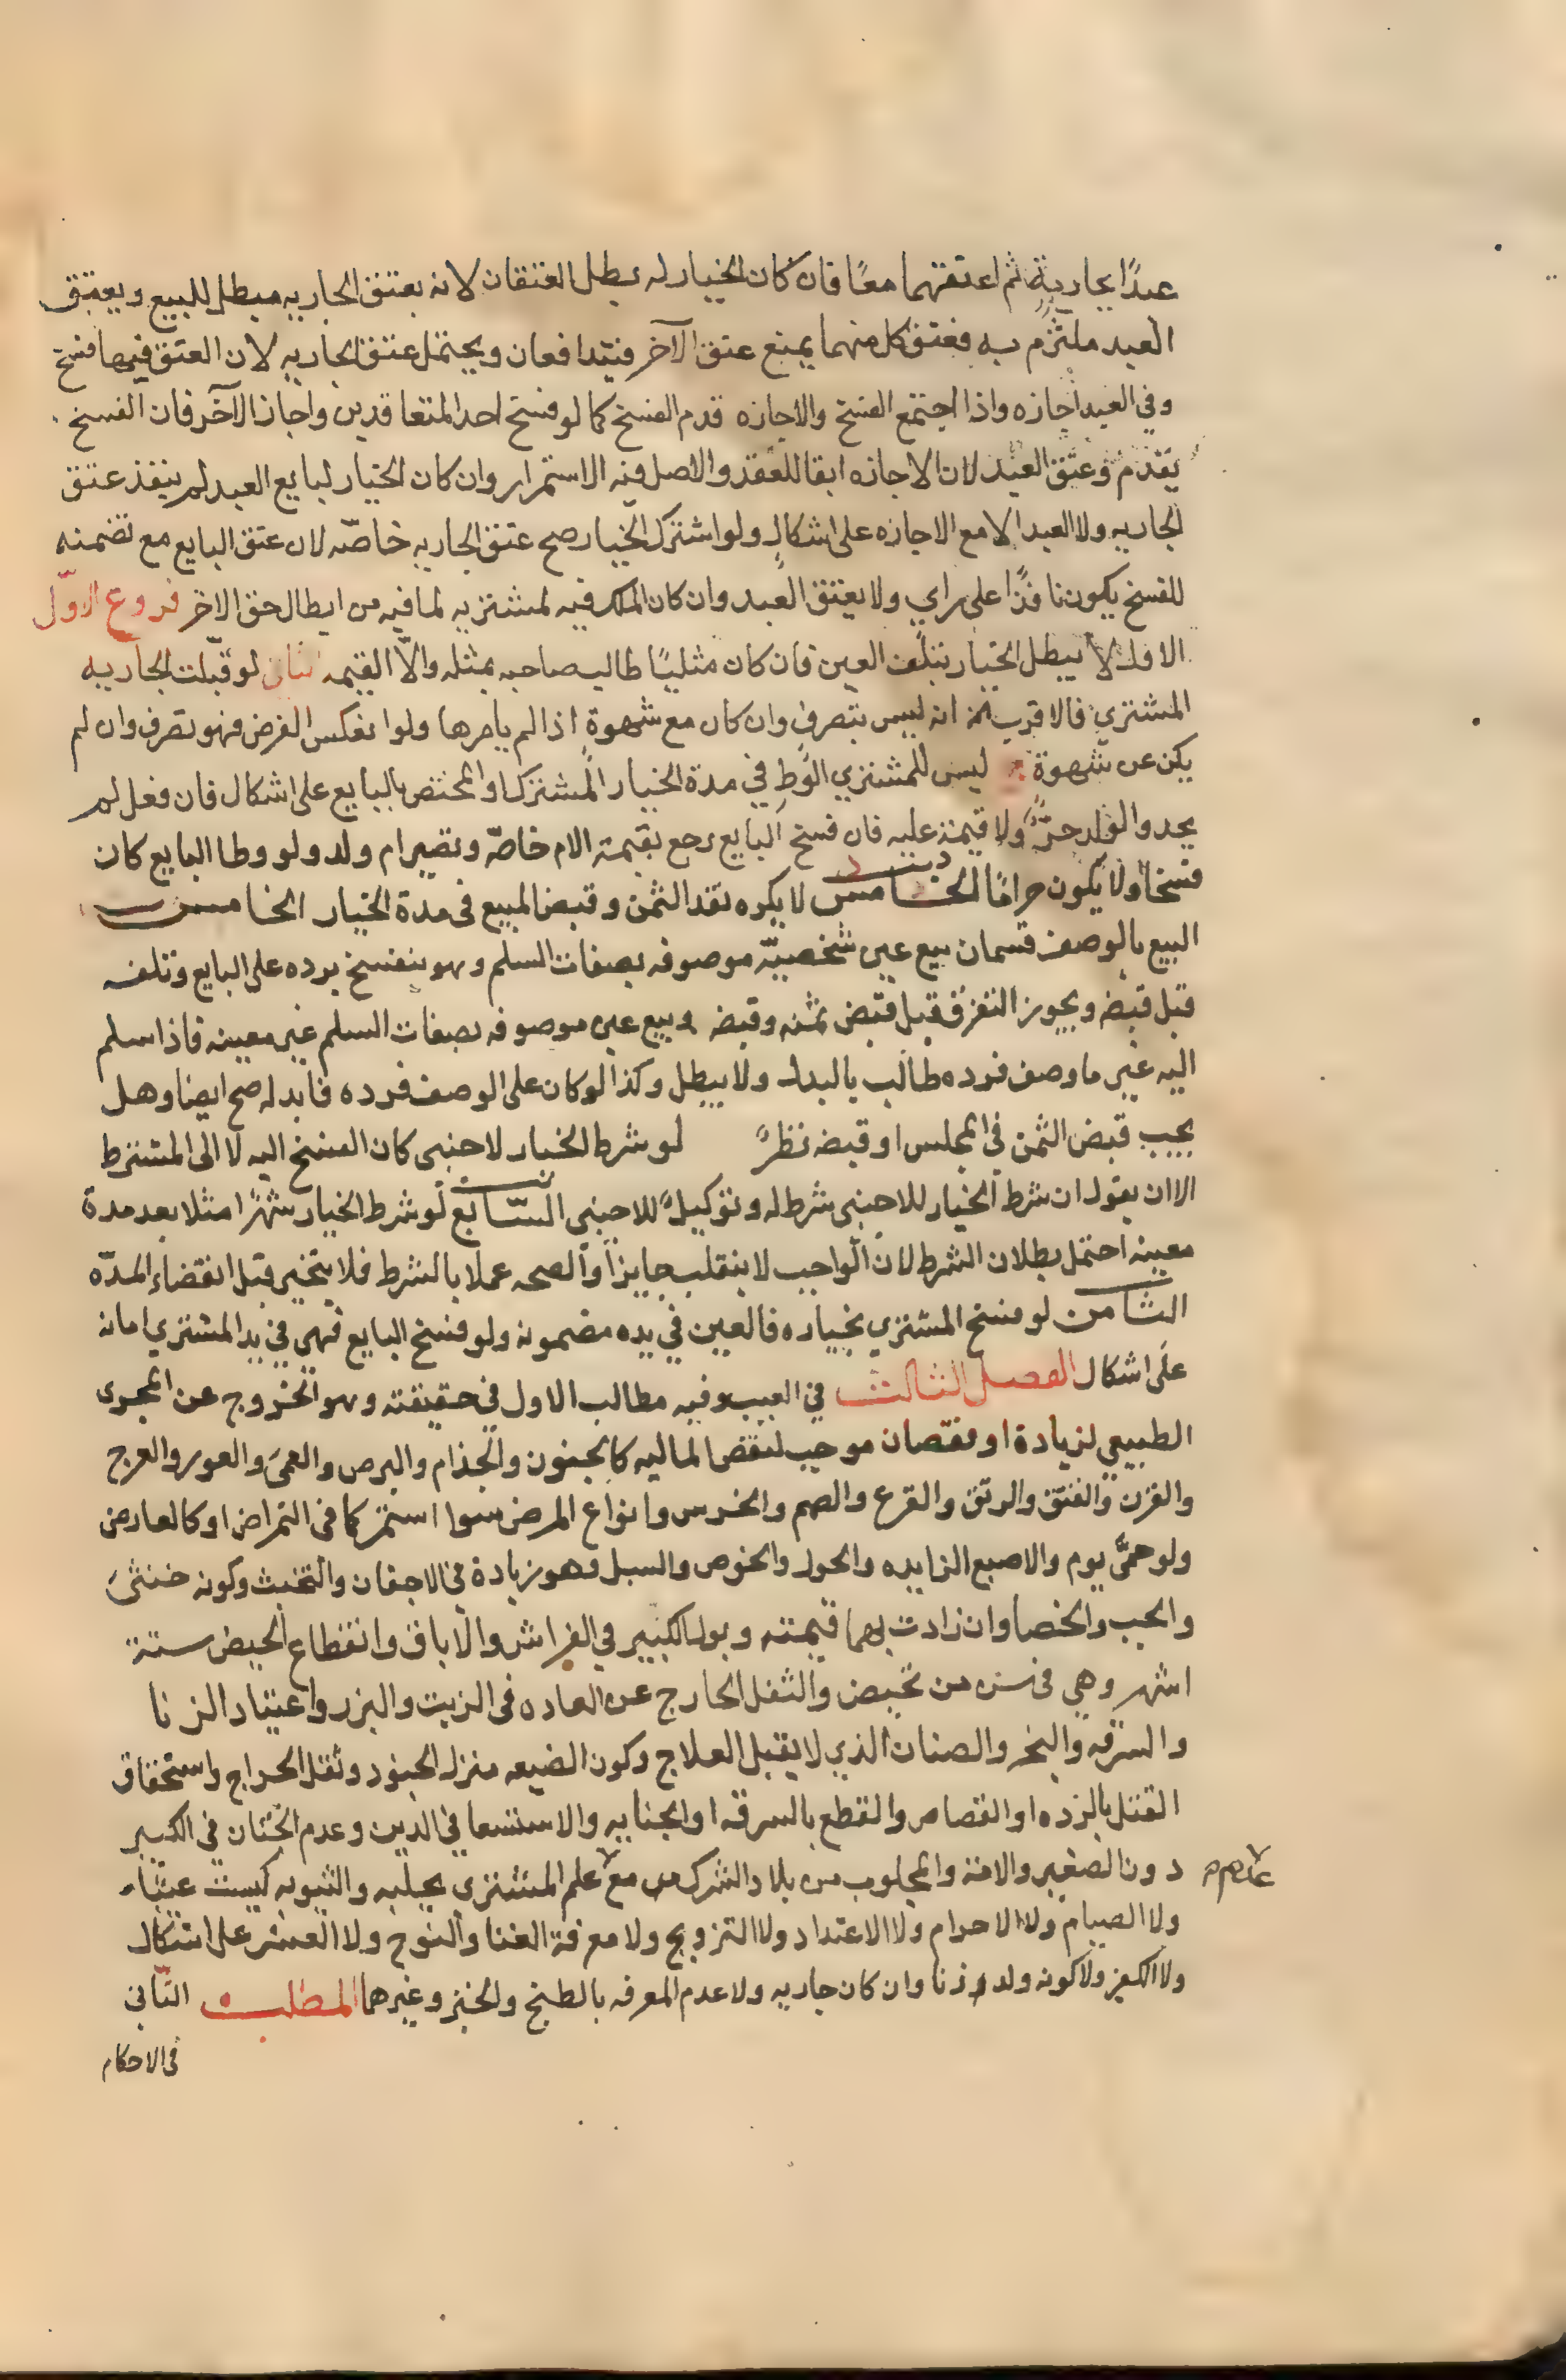 عبدًا بجاريةٍ ثم اعتقهما معًا فان كان الخيار له بطل العتقان لانه بعتق الجاريه مبطل للبيع وبعتق
العبد ملتزم به فعتق كل منهما يمنع عتق الآخر فيتدافعان ويحتمل عتق الجاريه لان العتق فيها فسخ
وفي العبد اجازه واذا اجتمع الفسخ والاجازه قدم الفسخ كما لو فسخ احد المتعاقدين واجاز الآخر فان الفسخ
يقدم وعتق العبد لان الاجازه ابقا للعقد والاصل فيه الاستمرار وان كان الخيار لبايع العبد لم ينفذ عتق
الجاريه ولا العبد الا مع الاجازه على اشكال ولو اشترك الخيار صح عتق الجاريه خاصّه لان عتق البايع مع تضمنه
للفسخ يكون نافذًا على راي ولا يعتق العبد وان كان الملك فيه لمشتريه لما فيه من ابطال حق الاخر فروع الاوّل
الاول لا يبطل الخيار بتلف العين فان كان مثليًا طالب صاحبه بمثله والّا القيمه الثاني لو قبلت الجاريه
المشتري فالاقرب انه ليس بتصرف وان كان مع شهوة اذا لم يامرها ولو انعكس الفرض فهو تصرف وان لم
يكن عن شهوة ليس للمشتري الوطِ في مدة الخيار المشترك او المختص بالبايع على اشكال فان فعل لم
يحد والولد حرٌّ ولا قيمة عليه فان فسخ البايع رجع بقيمة الام خاصّه وتصير ام ولد ولو وطا البايع كان
فسخا ولا يكون حرامًا الخامس لا يكره نقد الثمن وقبض المبيع في مدة الخيار الخامس
البيع بالوصف قسمان بيع عين شخصيّه موصوفه بصفات السلم وهو ينفسخ برده على البايع وتلفه
قبل قبضه ويجوز التفرق قبل قبض ثمنه وقبضه وبيع عين موصوفه بصفات السلم غير معينه فاذا سلم
اليه غير ما وصف فرده طالب بالبدل ولا يبطل وكذا لو كان على الوصف فرده فابدله صح ايضا وهل
يجب قبض الثمن في المجلس او قبضه نظرً لو شرط الخيار لاجنبي كان الفسخ اليه لا الى المشترط
الا ان يقول ان شرط الخيار للاجنبي شرط له وتوكيلً للاجنبي السّابع لو شرط الخيار شهرًا مثلا بعد مدة
معينه احتمل بطلان الشرط لان الواجب لا ينقلب جايزا والصحه عملا بالشرط فلا يتخير قبل انقضاء المدّه
الثامن لو فسخ المشتري بخياره فالعين في يده مضمونه ولو فسخ البايع فهي في يد المشتري امانه
على اشكال الفصل الثالث في العيب وفيه مطالب الاول في حقيقته وهو الخروج عن المجرى
الطبيعي لزيادة او نقصان موجب لنقص الماليه كالجنون والجذام والبرص والعمى والعور والعرج
والقرن والفتق والرتق والقرع والصمم والخرس وانواع المرض سوا استمر كما في الممراض او كالعارض
ولو حمىّ يوم والاصبع الزايده والحول والخوص والسبل وهو زيادة في الاجفان والتخنث وكونه خنثىَ
والجب والخصا وان زادت بهما قيمته وبول الكبير في الفراش والاباق وانقطاع الحيض ستة
اشهر وهي في سن من تحيض والثفل الخارج عن العاده في الزيت والبزر واعتياد الزنا
والسرقه والبخر والصنان الذي لا يقبل العلاج وكون الضيعه منزل الجنود وثقل الخراج واستحقاق
القتل بالرده او القصاص والقطع بالسرقه او الجنايه والاستسعا في الدين وعدم الختان في الكبير
دون الصغير والامة والمجلوب من بلاد الشرك مع علم المشتري بجلبه والثيوبه ليست عيبًا
ولا الصيام ولا الاحرام ولا الاعتداد ولا التزويج ولا معرفة الغنا والنوح ولا العسر على اشكال
ولا الكفر ولا كونه ولد زنا وان كان جاريه ولا عدم المعرفه بالطبخ والخبز وغيرهما المطلب الثاني
في الاحكام